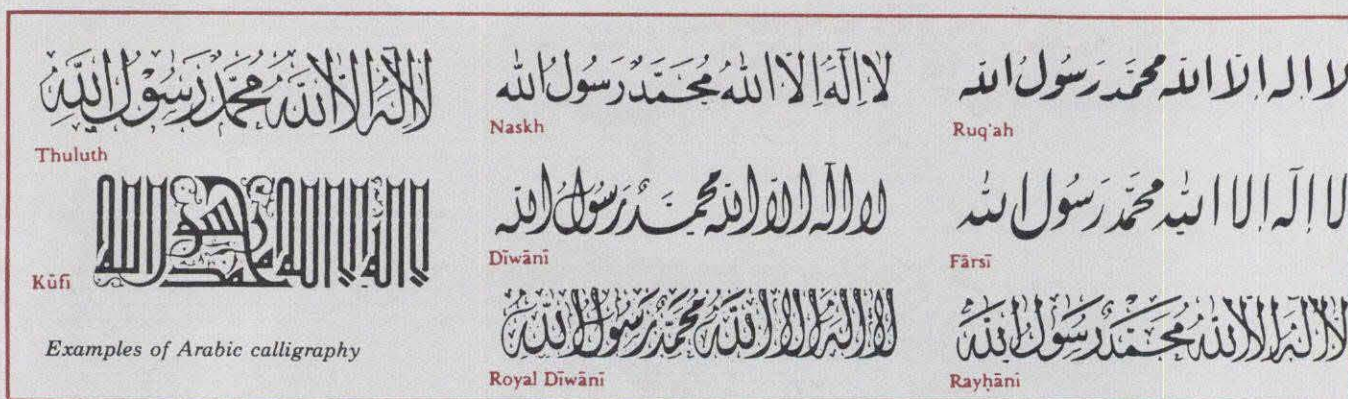 لا اله الا الله محمد رسول الله
Thuluth
لا اله الا الله محمد رسول الله
Kūfi
Examples of Arabic calligraphy
لا اله الا الله محمد رسول الله
Naskh
لا اله الا الله محمد رسول الله
Dīwānī
لا اله الا الله محمد رسول الله
Royal Dīwānī
لا اله الا الله محمد رسول الله
Ruq'ah
لا اله الا الله محمد رسول الله
Fārsī
لا اله الا الله محمد رسول الله
Rayḥānī